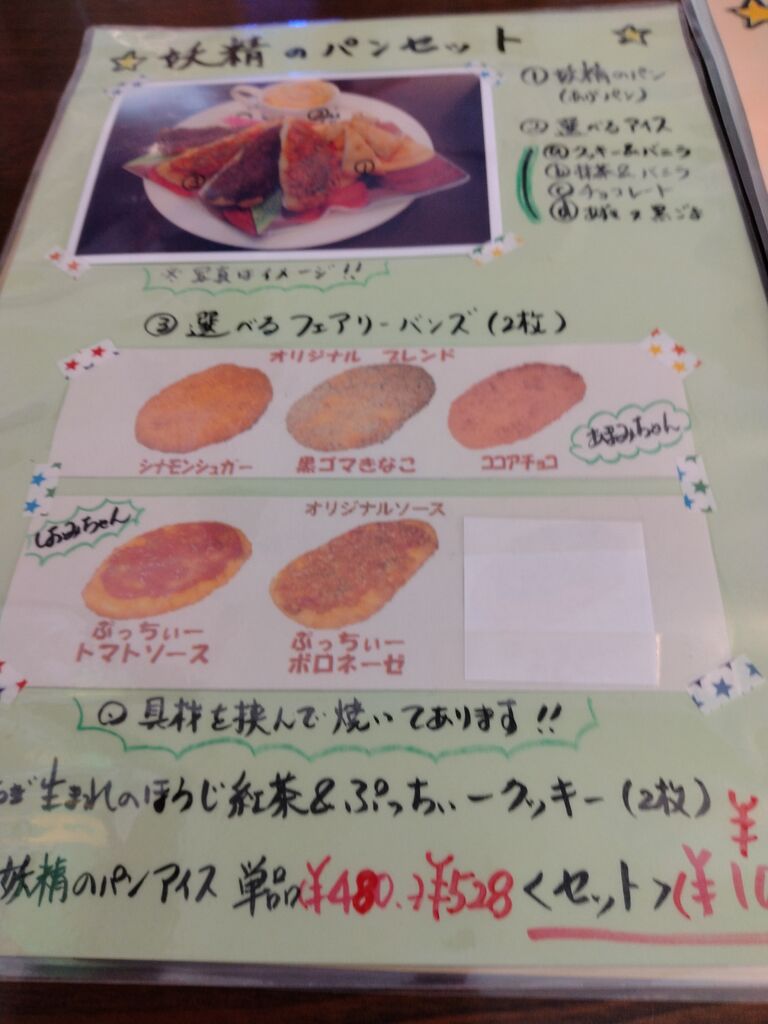 妖精のパンセット
①妖精のパン
(あげパン)
②選べるアイス
ⓐクッキー&バニラ
ⓑ抹茶&バニラ
ⓒチョコレート
※写真はイメージ!!
③選べるフェアリーバンズ(2枚)
オリジナル ブレンド
シナモンシュガー
黒ゴマきなこ
ココアチョコ
あまみちゃん
オリジナルソース
しおみちゃん
ぷっちぃー
トマトソース
ぷっちぃー
ボロネーゼ
具材を挟んで焼いてあります!!
生まれのほうじ紅茶&ぷっちぃークッキー(2枚)
妖精のパンアイス 単品(¥480.→¥528 <セット>(¥10